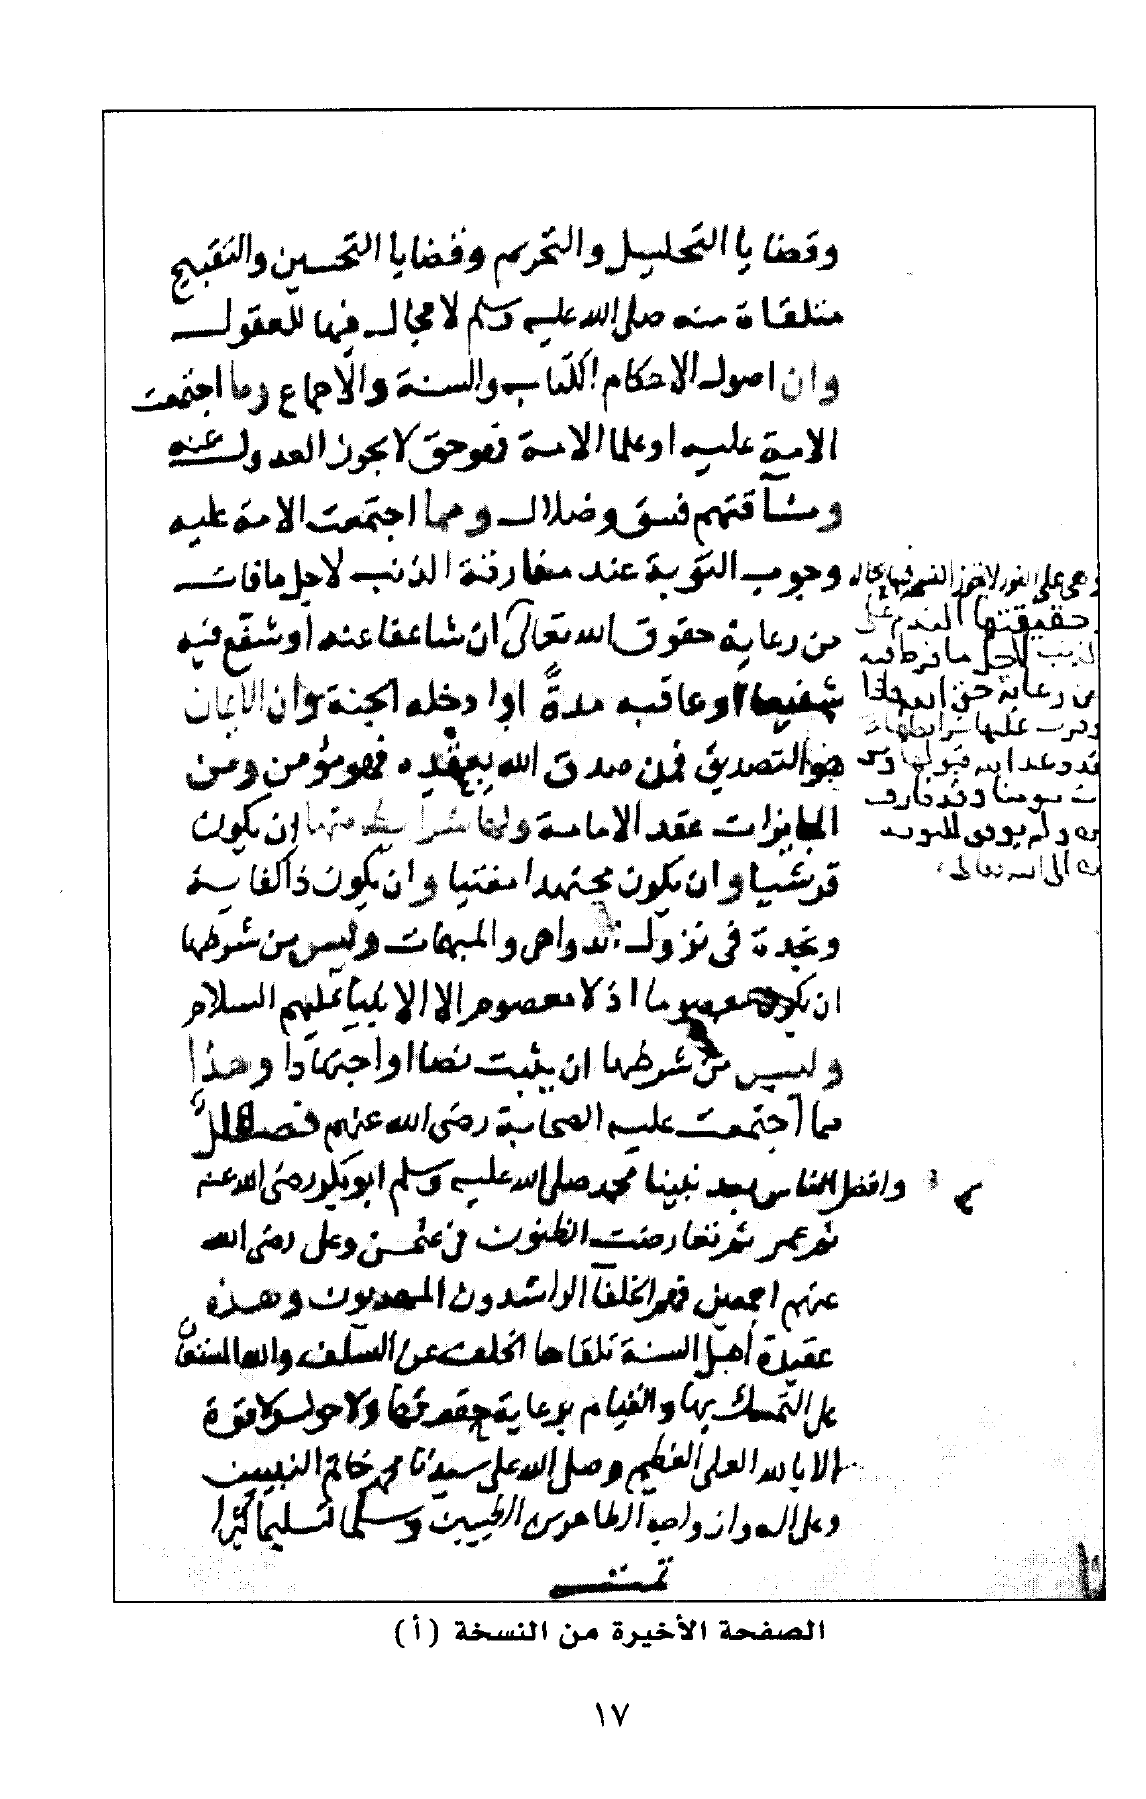 وقضايا التحليل والتحريم وقضايا التحسين والتقبيح
متلقاة منه صلى الله عليه وسلم لا مجال فيها للعقول
وان اصول الاحكام الكتاب والسنة والاجماع وما اجتمعت
الامة عليه او علما الامة فهو حق لا يجوز العدول عنه
ومشآقتهم فسق وضلال ومما اجتمعت الامة عليه
وجوب التوبة عند مقارفة الذنب لاجل مافات
من رعاية حقوق الله تعالى ان شا عفا عنه أو شفع فيه
شفيعا او عاقبه مدة اوا دخله الجنة وان الايمان
هو التصديق فمن صدق الله بعقده فهو مؤمن ومن
الجايزات عقد الامامة ولها شرايط منها ان يكون
قرشيا وان يكون مجتهدا مفتيا وان يكون ذا كفاية
ونجدة في نزول الدواهي والمبهمات وليس من شرطها
ان يكون معصوما اذ لا معصوم الا الانبيا عليهم السلام
وليس من شرطها ان يثبت نصا او اجتهادا وهذا
مما اجتمعت عليه الصحابة رضى الله عنهم فصل
وافضل الناس بعد نبينا محمد صلى الله عليه وسلم ابو بكر رضى الله عنه
ثم عمر ثم تعارضت الظنون في عثمن وعلى رضى الله
عنهم اجمعين فهم الخلفآ الراشدون المهديون وهذه
عقيدة أهل السنة تلقاها الخلف عن السلف والله المستعان
على التمسك بها والقيام برعاية حقوقها ولا حول ولا قوة
الا بالله العلى العظيم وصلى الله على سيدنا محمد خاتم النبيين
وعلى اله وازواجه الطاهرين الطيبين وسلم تسليما كثيرا
تمت
وهى على الفور لا يجوز
حقيقتها الندم على
الذنب لاجل ما فرط فيه
من رعاية حق الله
قبولها
إلى الله تعالى
الصفحة الأخيرة من النسخة (أ)
١٧